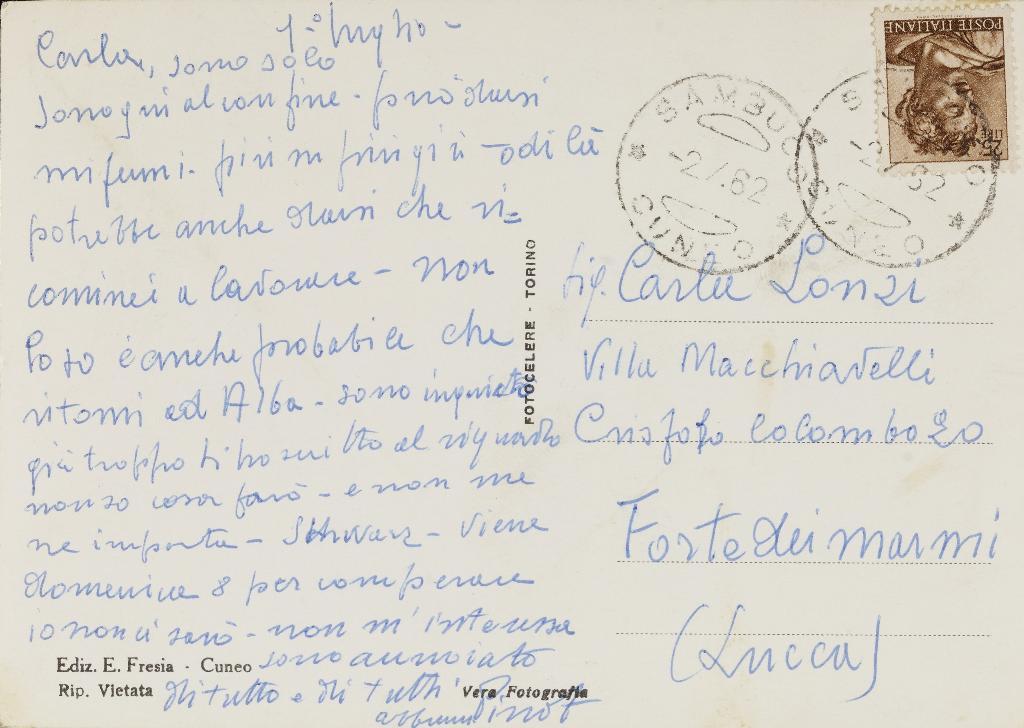 1° luglio -
Carla, sono solo
sono qui al confine - può darsi
mi fermi. più in più giù - o di là
potrebbe anche darsi che ri=
cominci a lavorare - non
lo so è anche probabile che
ritorni ad Alba - sono inquieto
già troppo ti ho scritto al riguardo
non so cosa farò - e non me
ne importa - Schwarz - viene
domenica 8 per comperare
io non ci sarò - non m'interessa
sono annoiato
di tutto e di tutti
Pinot
Ediz. E. Fresia - Cuneo
Rip. Vietata
Vera Fotografia
FOTOCELERE - TORINO
POSTE ITALIANE
LIRE 25
SAMBUCO
-2.7.62
CUNEO
SAMBUCO
-2.7.62
CUNEO
Sig. Carla Lonzi
Villa Macchiavelli
Cristofo Colombo 20
Forte dei marmi
(Lucca)